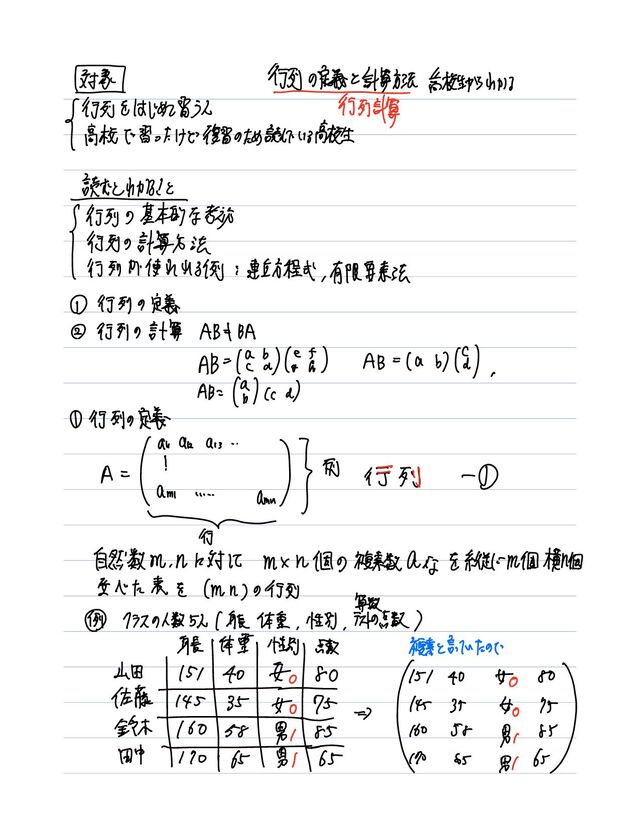 対象
行列の定義と計算方法 高校生からわかる
行列計算
行列をはじめて習う人
高校で習ったけど復習のため読んでいる高校生
読むとわかること
行列の基本的な考え方
行列の計算方法
行列が使われる例：連立方程式，有限要素法
① 行列の定義
② 行列の計算 AB≠BA
AB=(a b c d)(e f g h) AB=(a b)(c d),
AB=(a b)(c d)
① 行列の定義
A=(a11 a12 a13 ‥ am1 ‥‥ amn) 列 行列 -①
行
自然数m,nに対して m×n個の複素数aijを縦にm個 横n個
並べた表を (mn)の行列
例 クラスの人数5人(身長 体重, 性別, 算数テストの点数)
身長 体重 性別 点数 複素と言っていたので
山田 151 40 女0 80 ⇒ 151 40 女0 80
佐藤 145 35 女0 75 145 35 女0 75
鈴木 160 58 男1 85 160 58 男1 85
田中 170 65 男1 65 170 65 男1 65